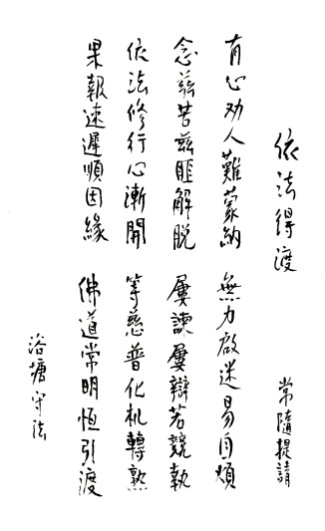 依法得渡 常隨提請
有心劝人難蒙納 無力啟迷易自煩
念茲苦茲匪解脱 屢諫屢辯若競執
依法修行心漸開 等慈普化机轉熟
果報速遲順因緣 佛道常明恒引渡
浴塘守法